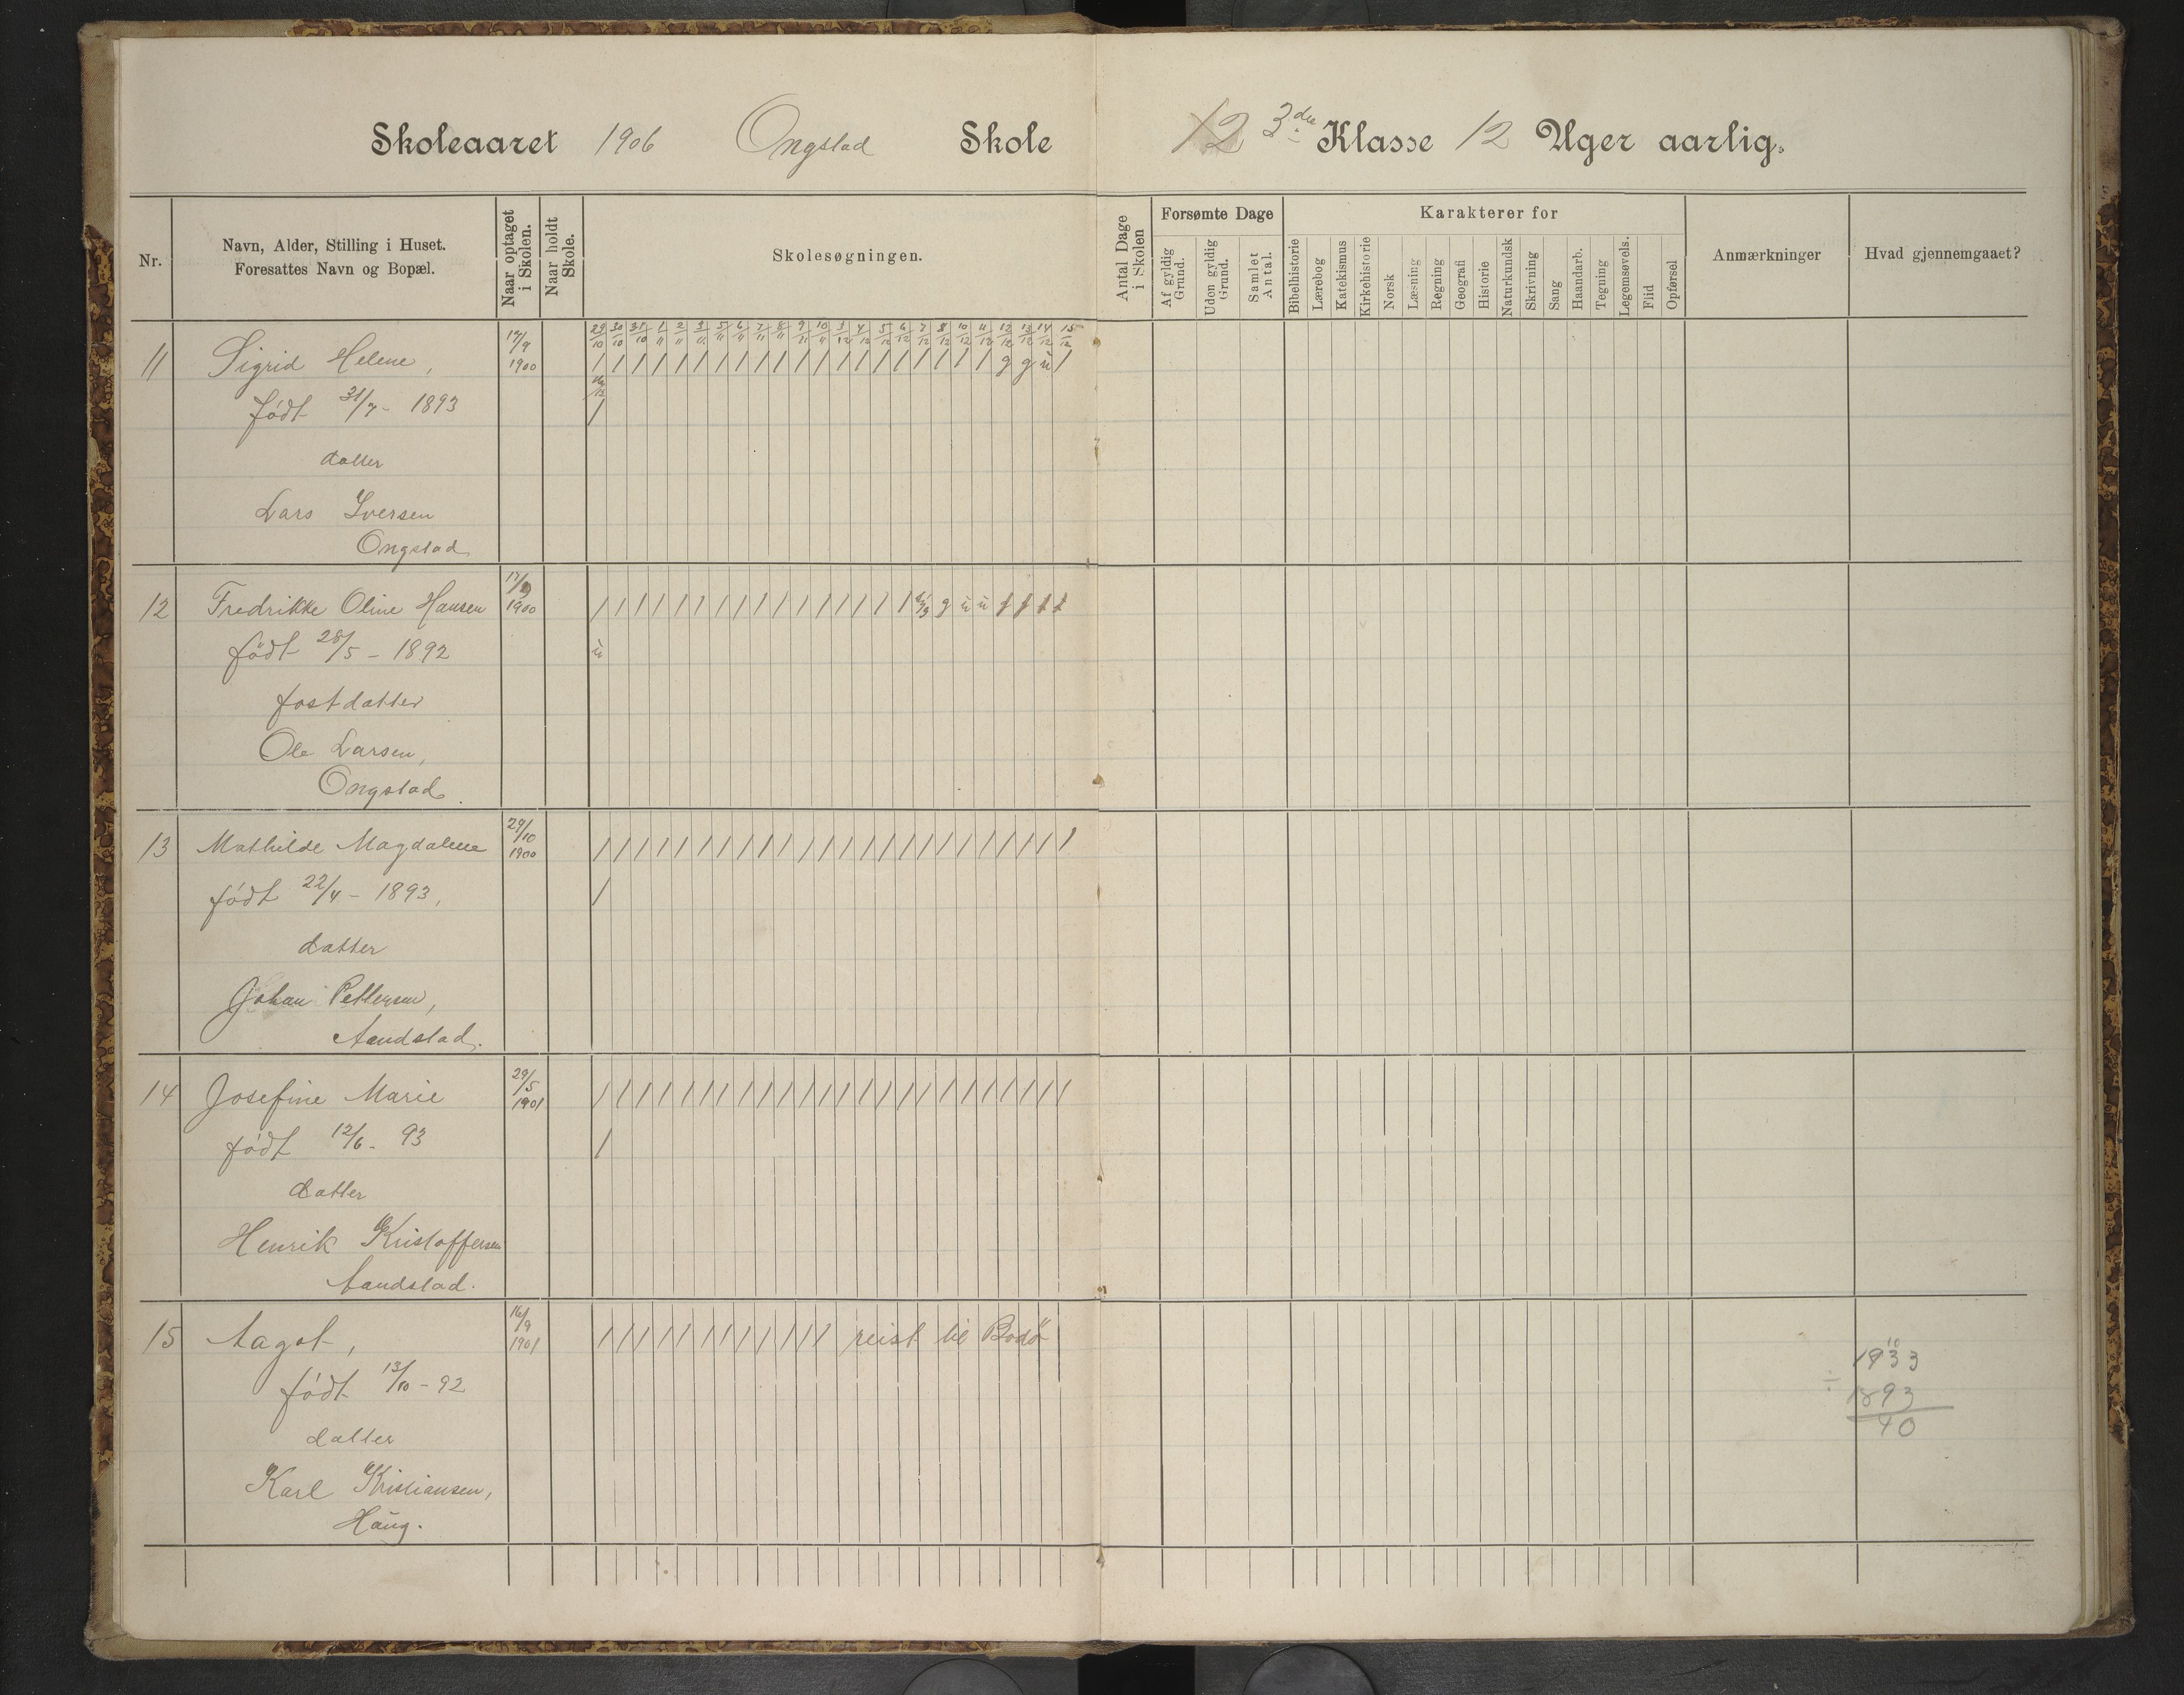 Skoleaaret 1906 Ongstad Skole 12 3die Klasse 12 Uger aarlig.
Nr.
Navn, Alder, Stilling i Huset.
Foresattes Navn og Bopæl.
Naar optaget
i Skolen.
Naar holdt
Skole.
Skolesøgningen.
Antal Dage
i Skolen
Forsømte Dage
Af gyldig
Grund.
Uden gyldig
Grund.
Samlet
Antal.
Karakterer for
Bibelhistorie
Lærebog
Katekismus
Kirkehistorie
Norsk
Læsning
Regning
Geografi
Historie
Naturkundsk
Skrivning
Sang
Haandarb.
Tegning
Legemsøvels.
Flid
Opførsel
Anmærkninger
Hvad gjennemgaaet?
29/10 30/10 31/10 1/11 2/11 3/11 5/11 6/11 7/11 8/11 9/11 10/11 3/12 4/12 5/12 6/12 7/12 8/12 10/12 11/12 12/12 13/12 14/12 15/12
11 Sigrid Helene, 17/9 1900 / / / / / / / / / / / / / / / / / / / / g g u /
født 31/7 - 1893 /
datter
Lars Iversen
Ongstad
12 Fredrikke Oline Hansen 17/9 1900 / / / / / / / / / / / / / / / / g u u f f f f
født 28/5 - 1892 u
fostdatter
Ole Larsen,
Ongstad.
13 Mathilde Magdalene 29/10 1900 / / / / / / / / / / / / / / / / / / / / / / / /
født 22/4 - 1893, /
datter
Johan Pettersen,
Aandstad.
14 Josefine Marie 29/5 1901 / / / / / / / / / / / / / / / / / / / / / / / /
født 12/6 - 93 /
datter
Henrik Kristoffersen
Aandstad.
15 Aagot, 16/9 1901 / / / / / / / / / / / / reist til Bodø
født 13/10 - 92
datter
Karl Kristiansen,
Haug.
10
1933
÷ 1893
40